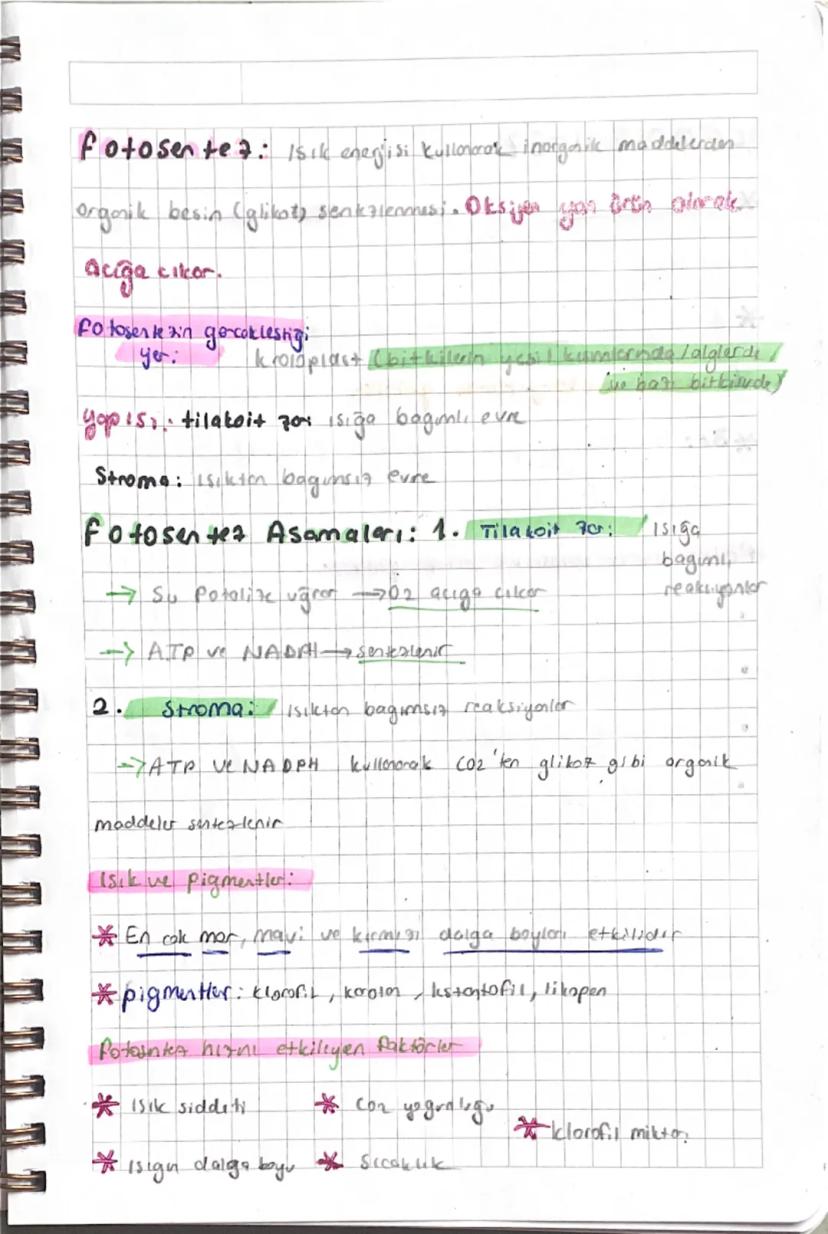 Fotosentez: Isık enerjisi kullanarak inorganik maddelerden
organik besin (glikoz) sentezlenmesi. Oksijen yan ürün olarak
acığa cıkar.
Fotosentezin gerceklestiği
yer: kroloplast (bitkilerin yesil kısımlarında/alglerde/
ve bazı bitkilerde)
Yapısı: tilakoit zar: ısığa bagımlı evre
Stroma: ısıktan bagımsız evre
Fotosentez Asamaları: 1. Tilakoit zar: Isığa
bagımlı
reaksiyonlar
→ Su Fotolize uğrar → O2 acıga cıkar
→ ATP ve NADPH → sentezlenir
2. Stroma: ısıktan bagımsız reaksiyonlar
→ ATP ve NADPH kullanarak CO2'ten glikoz gibi organik
maddeler sentezlenir
Isık ve pigmentler:
* En cok mor, mavi ve kırmızı dalga boyları etkilidir
* pigmentler: klorofil, karoten, ksantofil, likopen
Fotosentez hızını etkileyen faktörler
* Isık siddeti * CO2 yogunlugu
* klorofil miktarı
* Isıgın dalga boyu * Sıcaklık